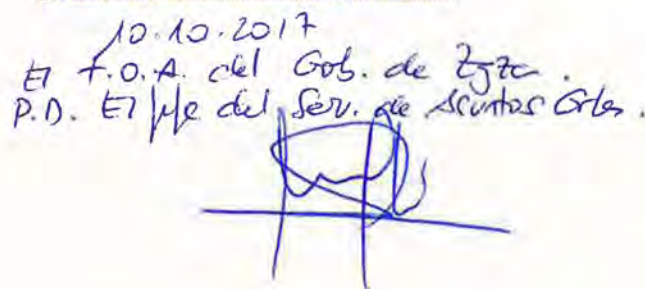 10.10.2017
El T.O.A. del Gob. de Zgza.
P.D. El Jefe del Serv. de Asuntos Grles.